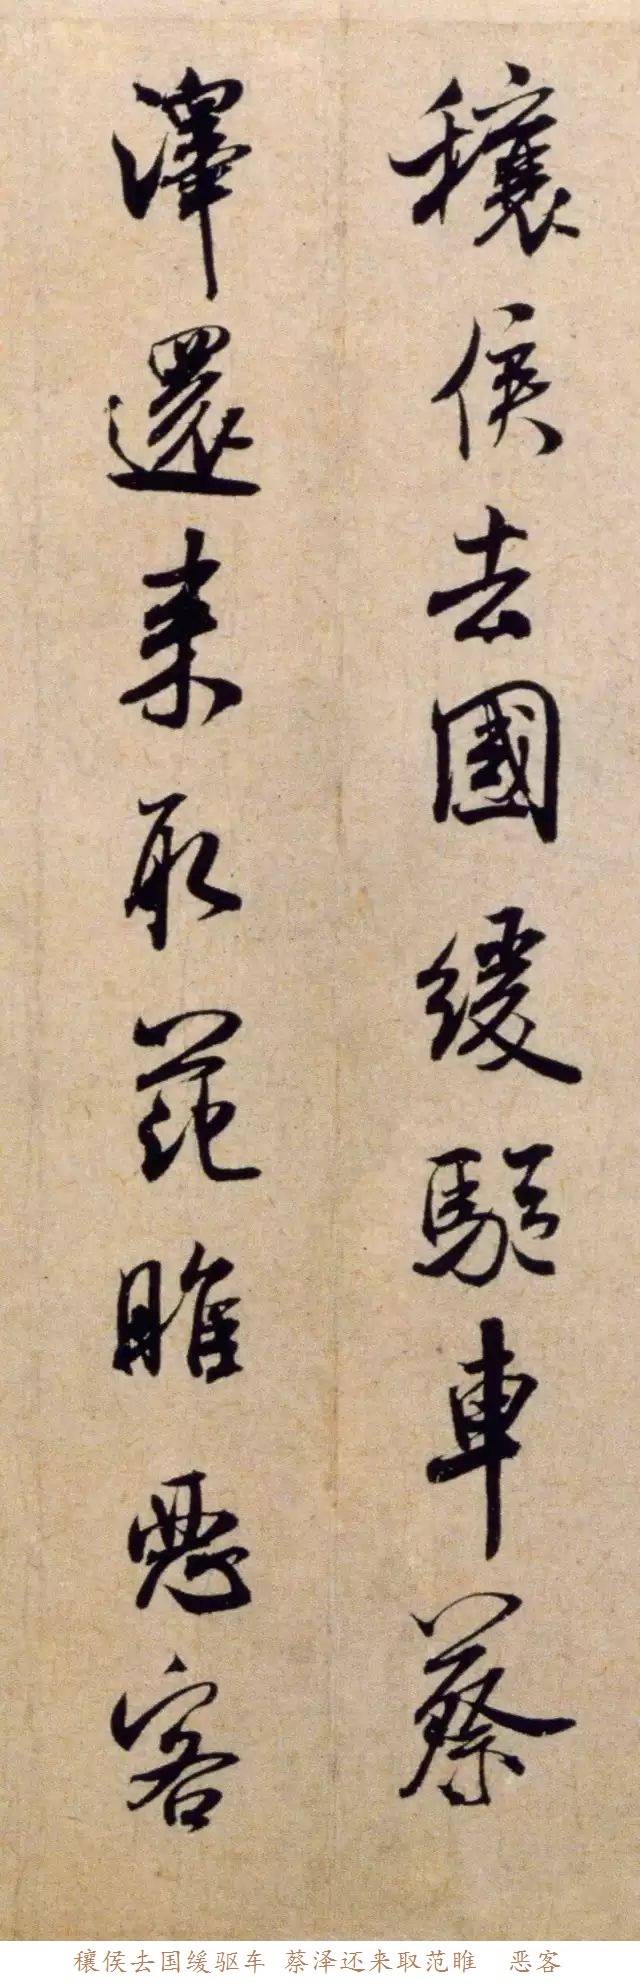 穰侯去國緩驅車蔡
澤還来取范睢惡客
穰侯去国缓驱车 蔡泽还来取范睢 恶客